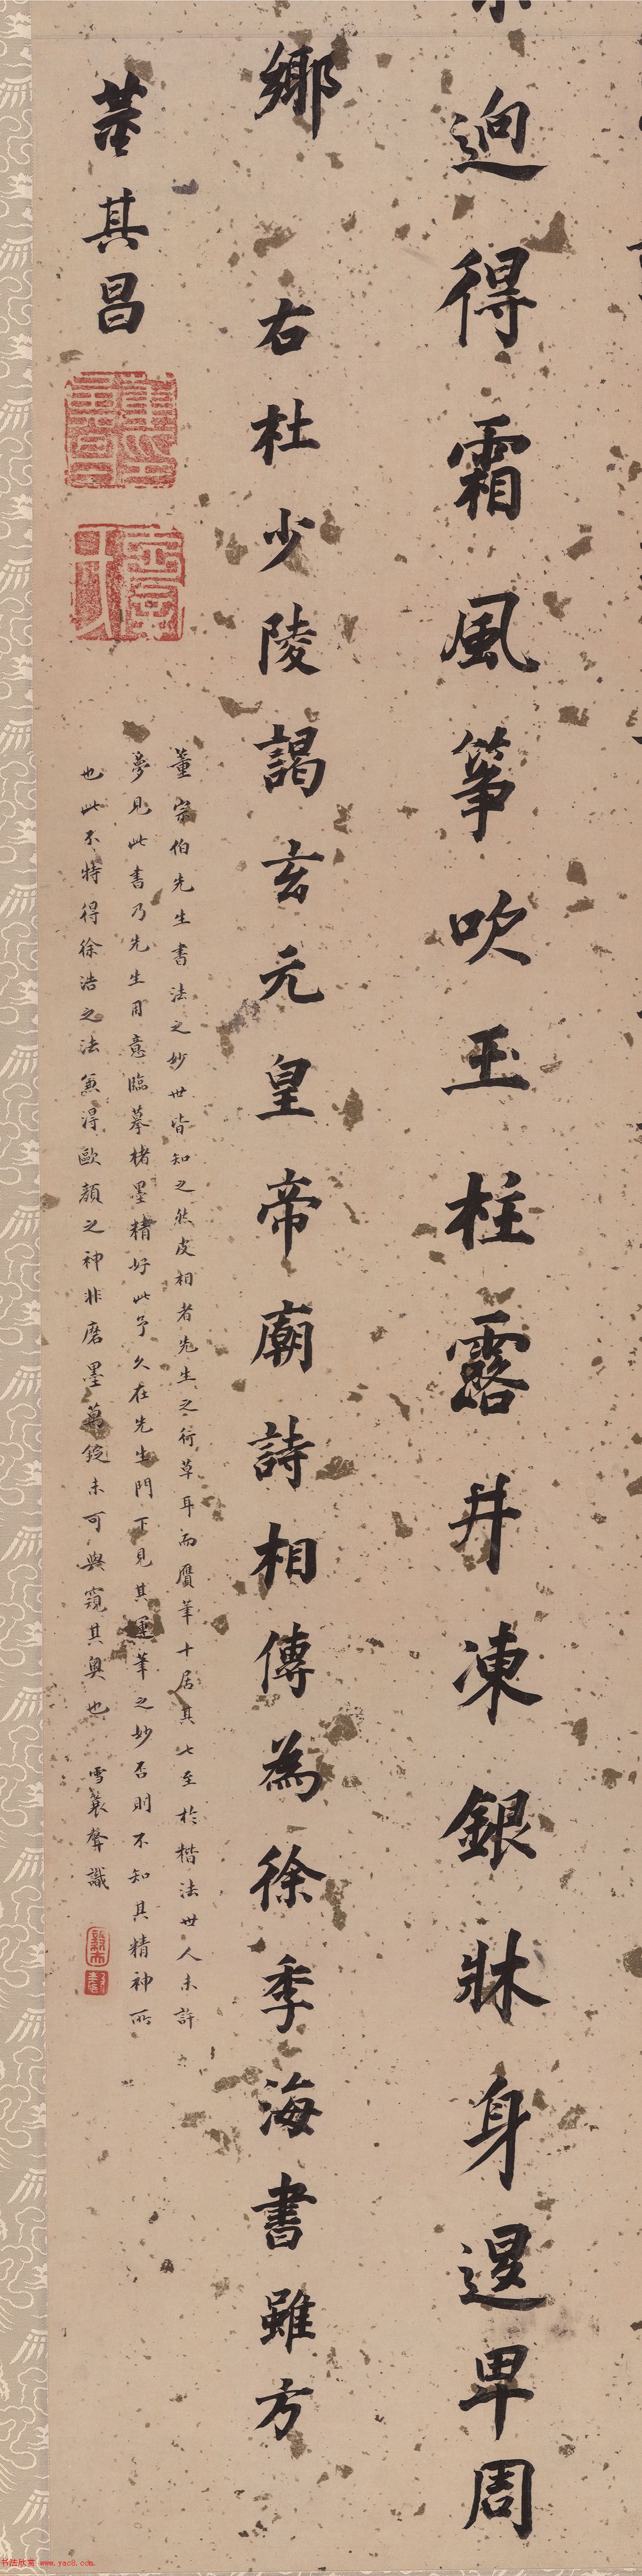 迥得霜風筝吹玉柱露井凍銀牀身退卑周
鄉　右杜少陵謁玄元皇帝廟詩相傳為徐季海書雖方
董其昌
董宗伯先生書法之妙世皆知之然皮相者先生之行草耳而贗筆十居其七至於楷法世人未許
夢見此書乃先生用意臨摹楮墨精好此予久在先生門下見其運筆之妙否則不知其精神所
也此不特得徐浩之法兼得歐顏之神非磨墨萬錠未可與窺其奧也　雪蓑聲識
书法欣赏 www.yac8.com